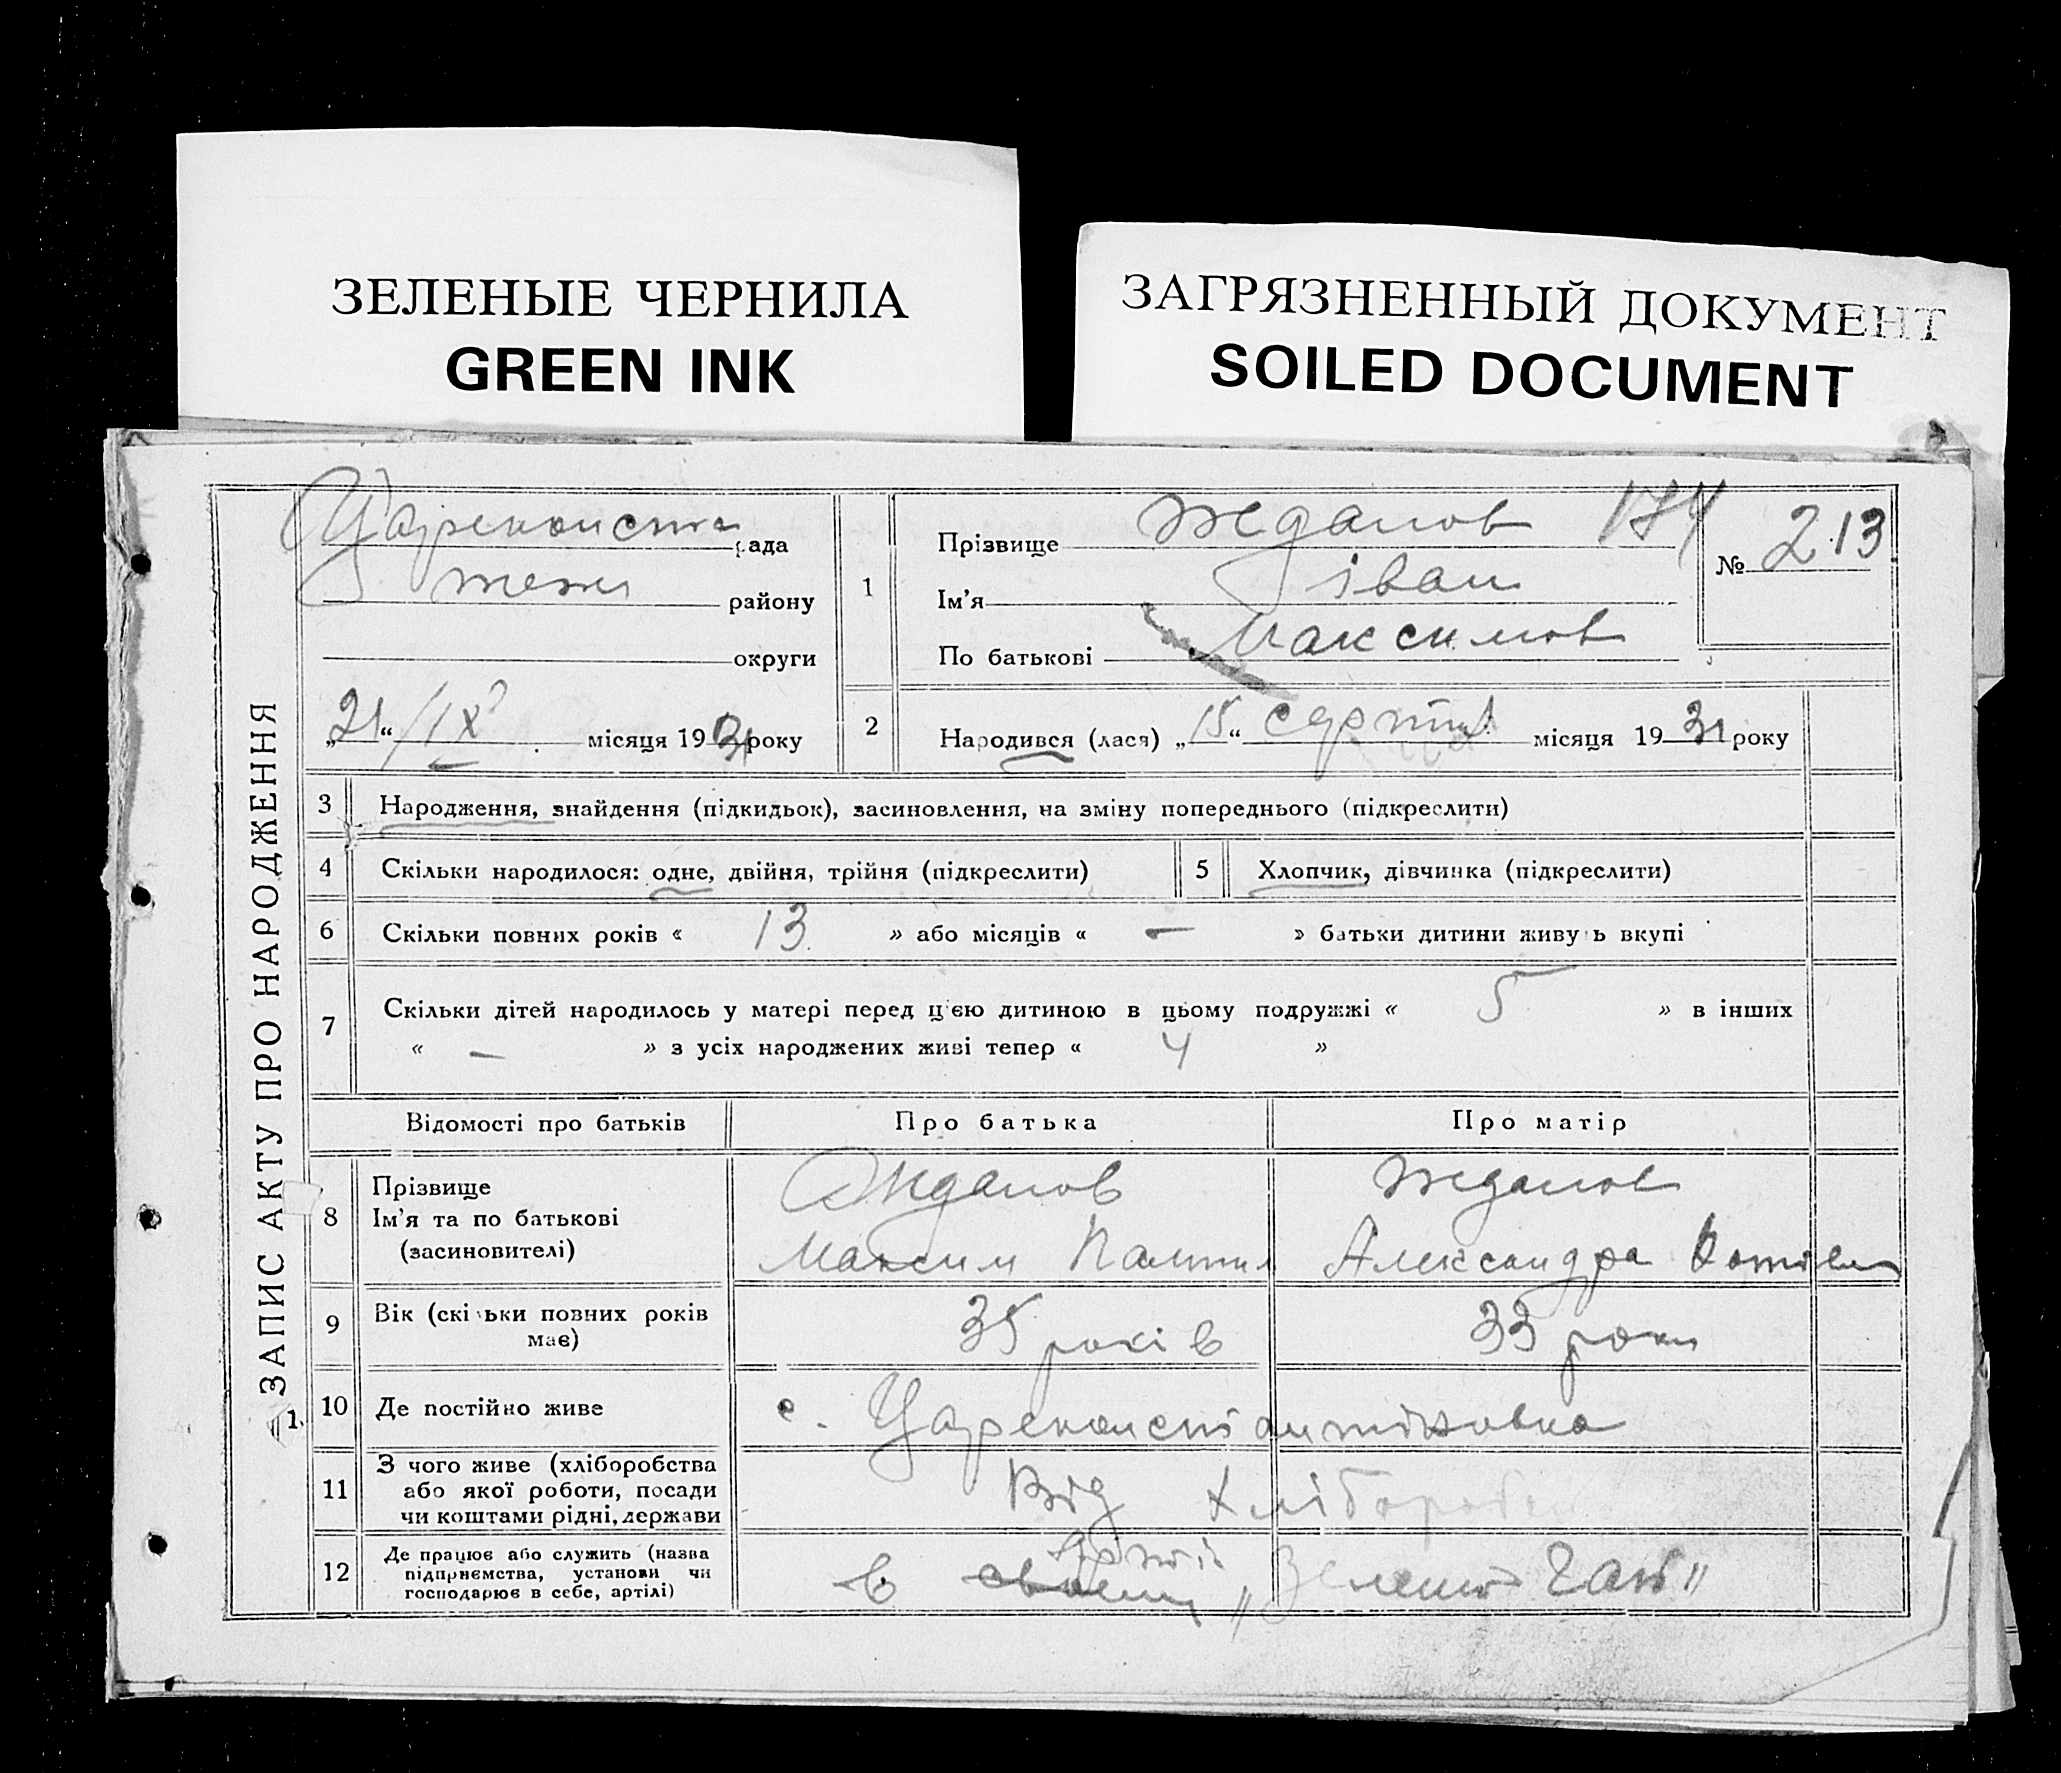 ЗЕЛЕНЫЕ ЧЕРНИЛА
GREEN INK
ЗАГРЯЗНЕННЫЙ ДОКУМЕНТ
SOILED DOCUMENT
ЗАПИС АКТУ ПРО НАРОДЖЕННЯ
рада
району
округи
„21“ /IX місяця 1931 року
1
Прізвище Жданов 174
Ім’я Іван
По батькові Максимов
№ 213
2
Народився (лася) „15“ серпня місяця 1931 року
3 Народження, знайдення (підкидьок), засиновлення, на зміну попереднього (підкреслити)
4 Скільки народилося: одне, двійня, трійня (підкреслити)
5 Хлопчик, дівчинка (підкреслити)
6 Скільки повних років « 13 » або місяців « — » батьки дитини живуть вкупі
7 Скільки дітей народилось у матері перед цією дитиною в цьому подружжі « 5 » в інших
« — » з усіх народжених живі тепер « 4 »
Відомості про батьків
Про батька
Про матір
8 Прізвище
Ім’я та по батькові
(засиновителі)
Жданов
Максим
Жданов
Александра
9 Вік (скільки повних років
має)
35 років
33 роки
10 Де постійно живе
с. Царекостянтиновка
11 З чого живе (хліборобства
або якої роботи, посади
чи коштами рідні, держави
Від хлібороб
12 Де працює або служить (назва
підприємства, установи чи
господарює в себе, артілі)
в „Зелений Гай"
1.